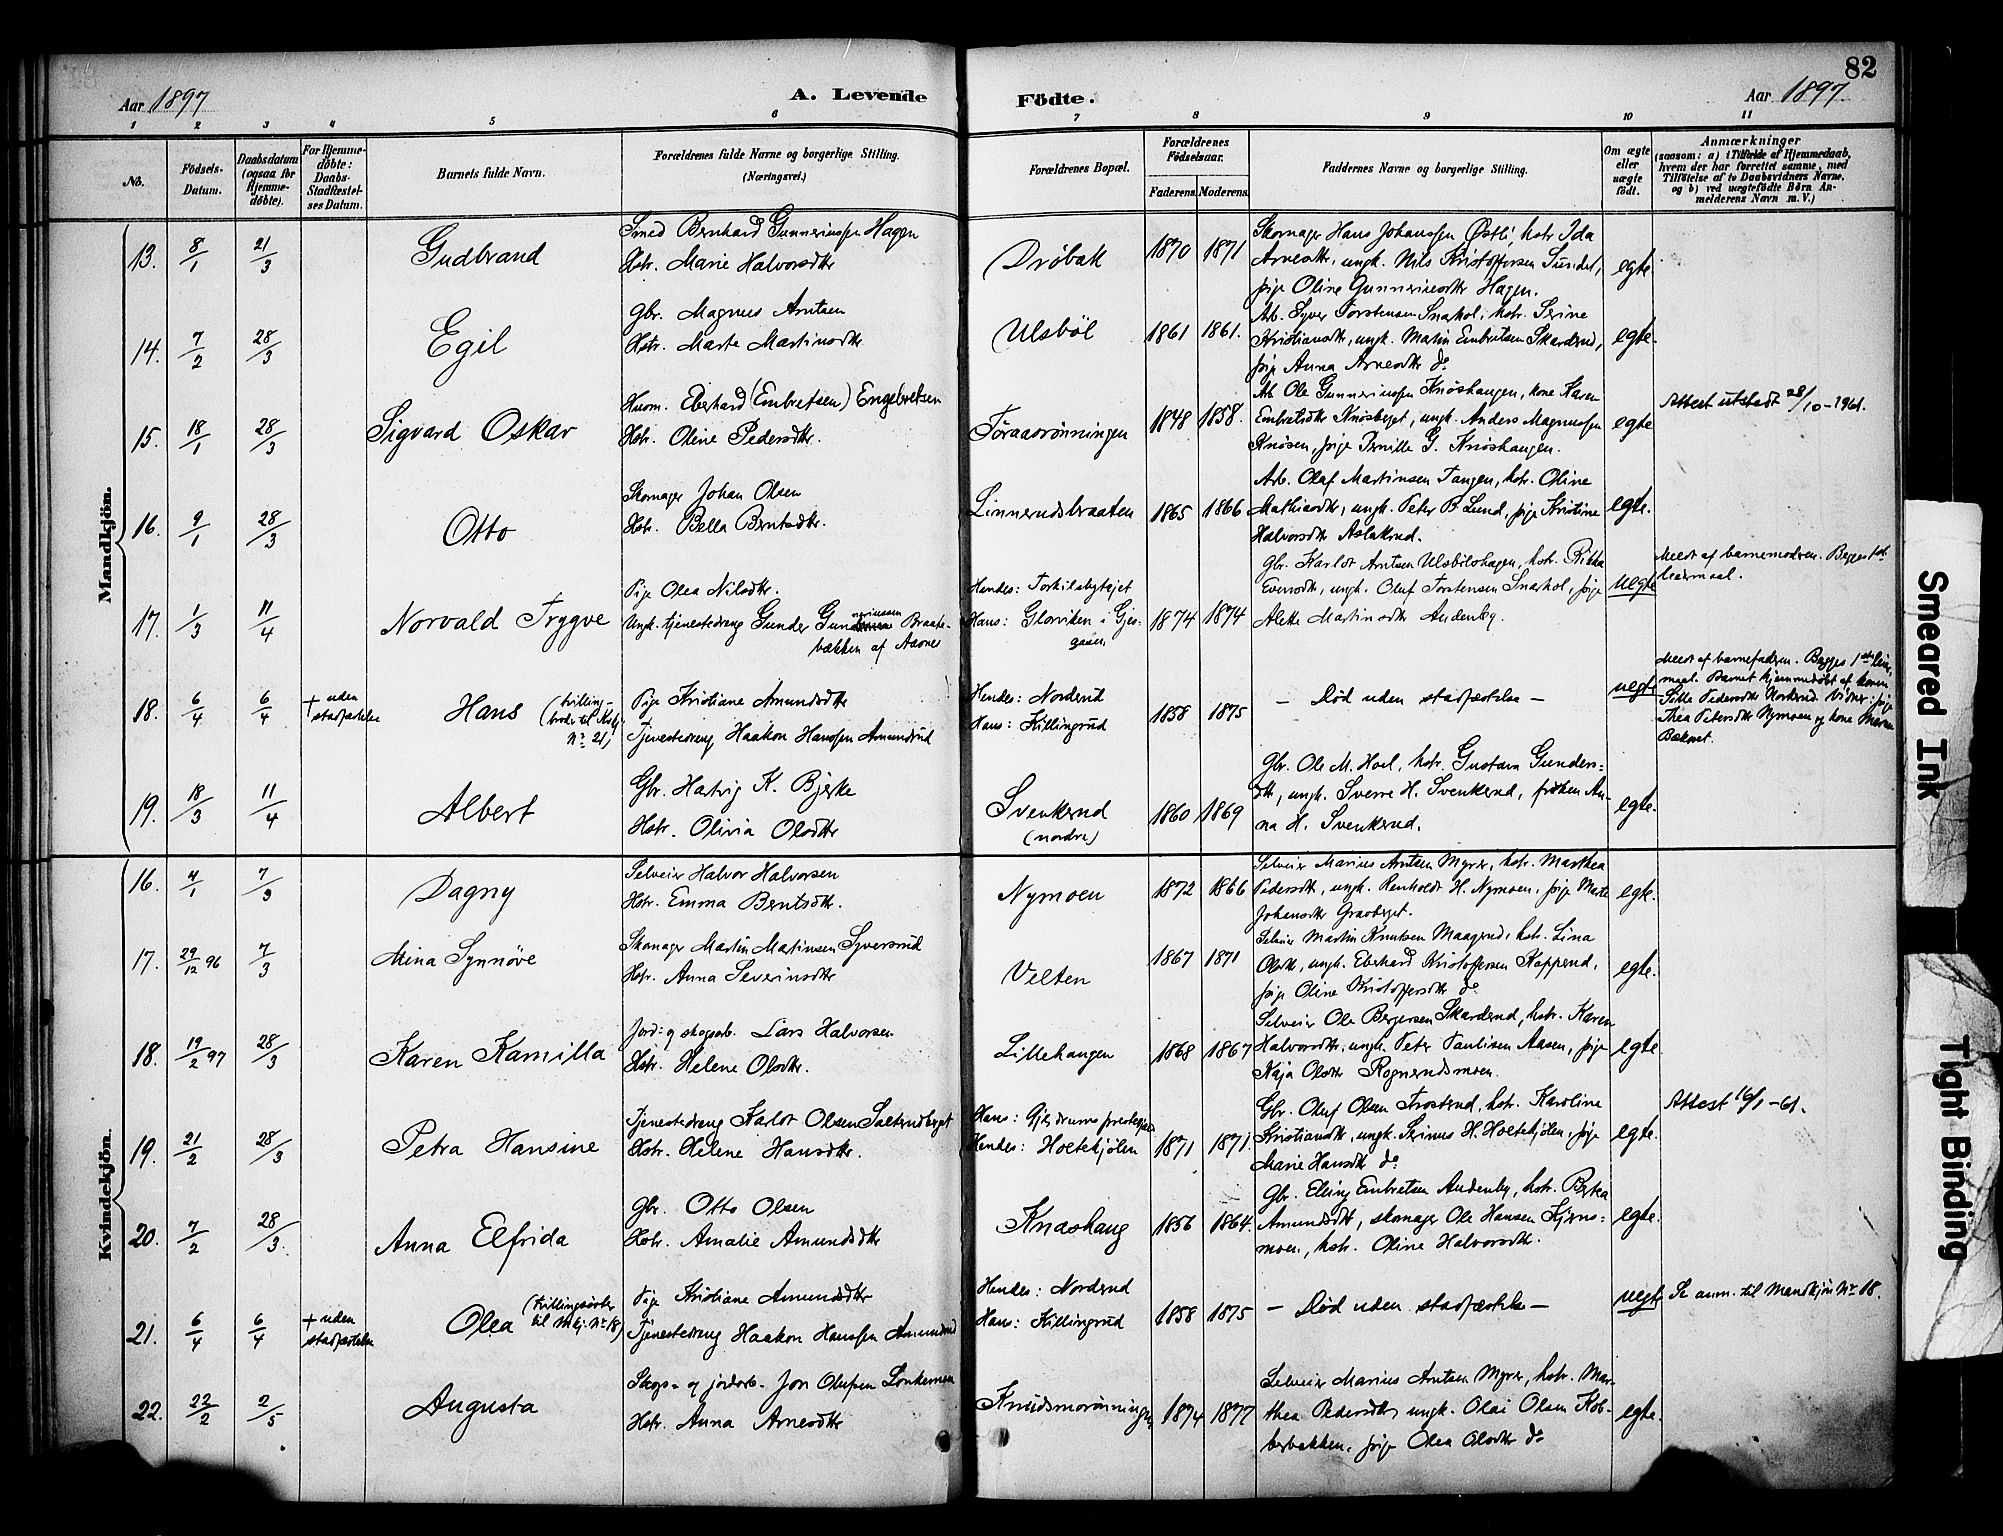 82
Aar 1897
A. Levende
Födte.
Aar 1897
1 2 3 4 5 6 7 8 9 10 11
No.
Födsels-
Datum.
Daabsdatum
(ogsaa for
Hjemme-
döbte).
For Hjemme-
döbte:
Daabs-
Stadfæstel-
ses Datum.
Barnets fulde Navn.
Forældrenes fulde Navne og borgerlige Stilling.
(Næringsvei.)
Forældrenes Bopæl.
Forældrenes
Födselsaar.
Faderens. Moderens.
Faddernes Navne og borgerlige Stilling.
Om ægte
eller
uægte
födt.
Anmærkninger
(saasom: a) i Tilfælde af Hjemmedaab,
hvem der har forrettet samme, med
Tilföielse af to Daabsvidners Navne,
og b) ved uægtefödte Börn An-
melderens Navn m. V.)
Mandkjön.
13. 8/1 21/3
Gudbrand
Smed Bernhard Gunneriussen Hagen
Hstr. Marie Halvorsdtr
Drøbak
1870 1871
Skomager Hans Johanssen Østli, hstr. Ida
Arnesdtr, ungk. Nils Kristoffersen Sundet,
pige Oline Gunneriusdtr Hagen.
egte
14. 7/2 28/3
Egil
Gbr. Magnus Arntsen
Hstr. Marte Martinsdtr
Ulsbøl
1861 1861.
Arb. Syver Torstensen Snarhol, hstr. Serine
Kristiansdtr, ungk. Martin Embretsen Skarderud,
pige Anna Arnesdtr do
egte.
15. 18/1 28/3
Sigvard Oskar
Husm. Eberhard (Embretsen) Engebretsen
Hstr. Oline Pedersdtr.
Føraasrønningen
1848 1858.
Arb. Ole Gunneriussen Knøshaugen, kone Karen
Embretsdtr Knøsberget, ungk. Anders Magnussen
Knøsen, pige Pernille G. Knøshaugen.
egte
Attest utstedt 28/10-1961.
16. 9/1 28/3
Otto
Skomager Johan Olsen
Hstr. Bella Berntsdtr.
Linnerudsbraaten
1865 1866
Arb. Olaf Martinsen Tangen, hstr. Oline
Mathiasdtr, ungk. Peter B. Lund, pige Kristine
Halvorsdtr Aslakrud.
egte.
17. 1/3 11/4
Norvald Trygve
Pige Olea Nilsdtr.
Ungk. tjenestedreng Gunder Gunneriussen Braate-
bækken af Aasnes
Hendes: Torkilsbytøjet
Hans: Glorviken i Gjes-
aasen
1874 1874
Gbr. Karlot Arntsen Ulsbølshagen, hstr. Rikka
Evensdtr, ungk. Oluf Torstensen Snarhol, pige
Alette Martinsdtr Audenby.
uegte
Meldt af barnemoderen. Begges 1ste
leiermaal.
18. 6/4 6/4
+ uden
stadfæstelse
Hans (tvilling-
broder til Kvkj.
No 21)
Pige Kristiane Amundsdtr
Tjenestedreng Haakon Hanssen Amundrud
Hendes: Norderud
Hans: Killingrud
1858 1875
- Død uden stadfæstelse -
uegte
Meldt af barnefaderen. Begges 1ste leier-
maal. Barnet hjemmedøbt af kone
Pedersdtr Norderud. Vidner: pige
Thea Petersdtr Nymoen og kone Maren
19. 18/3 11/4
Albert
Gbr. Hartvig K. Bjerke
Hstr. Olivia Olsdtr
Svenkerud
(nordre)
1860 1869
Gbr. Ole M. Hoel, hstr. Gustava Gunders=
dtr, ungk. Sverre H. Svenkerud, frøken An-
na H. Svenkerud.
egte.
Kvindekjön.
16. 4/1 7/3
Dagny
Selveier Halvor Halvorsen
Hstr. Emma Berntsdtr.
Nymoen
1872 1866
Selveier Marius Arntsen Myrer, hstr. Marthea
Pedersdtr, ungk. Renholdt H. Nymoen, pige Marte
Johansdtr Graaberget.
egte.
17. 29/12 96 7/3
Mina Synnøve
Skomager Martin Martinsen Syversrud
Hstr. Anna Severinsdtr
Velten
1867 1871
Selveier Martin Knutsen Maagerud, hstr. Lina
Olsdtr, ungk. Eberhard Kristoffersen Kapperud,
pige Oline Kristoffersdtr do
egte.
18. 19/2 97 28/3
Karen Kamilla
Jord- og skogarb. Lars Halvorsen
Hstr. Helene Olsdtr.
Lillehaugen
1868 1867
Selveier Ole Bergersen Skarderud, hstr. Karen
Halvorsdtr, ungk. Peter Paulisen Aasen, pige
Kaja Olsdtr Rognerudsmoen.
egte.
19. 21/2 28/3
Petra Hansine
Tjenestedreng Karlot Olsen Sæterudberget
Hstr. Helene Hansdtr.
Hans: Gjerdrums prestegjeld
Hendes: Holtekjølen
1871 1871.
Gbr. Oluf Olsen Trosterud, hstr. Karoline
Kristiansdtr, ungk. Serinus H. Holtekjølen, pige
Marie Hansdtr do
egte.
Attest 16/1-61.
20. 7/2 28/3.
Anna Elfrida
Gbr. Otto Olsen
Hstr. Amalie Amundsdtr
Knashaug
1856 1864.
Gbr. Elling Embretsen Audenby, hstr. Berta
Amundsdtr, skomager Ole Hansen Kjerns=
moen, hstr. Oline Halvorsdtr.
egte.
21. 6/4 6/4
+ uden
stadfæstelse
Olea (tvillingsøster
til Mkj. No 18)
Pige Kristiane Amundsdtr
Tjenestedreng Haakon Hanssen Amundrud
Hendes: Norderud
Hans: Killingrud
1858 1875
- Død uden stadfæstelse -
uegte
Se anm. til Mandkjøn No 18.
22. 22/2 2/5
Augusta
Skogs- og jordarb. Jon Olufsen Lonkemoen
Hstr. Anna Arnesdtr
Knudsmorønningen
1874 1877
Selveier Marius Arntsen Myrer, hstr. Mar-
thea Pedersdtr, ungk. Olai Olsen Kob-
berbakken, pige Olea Olsdtr do
egte.
Smeared Ink
Tight Binding